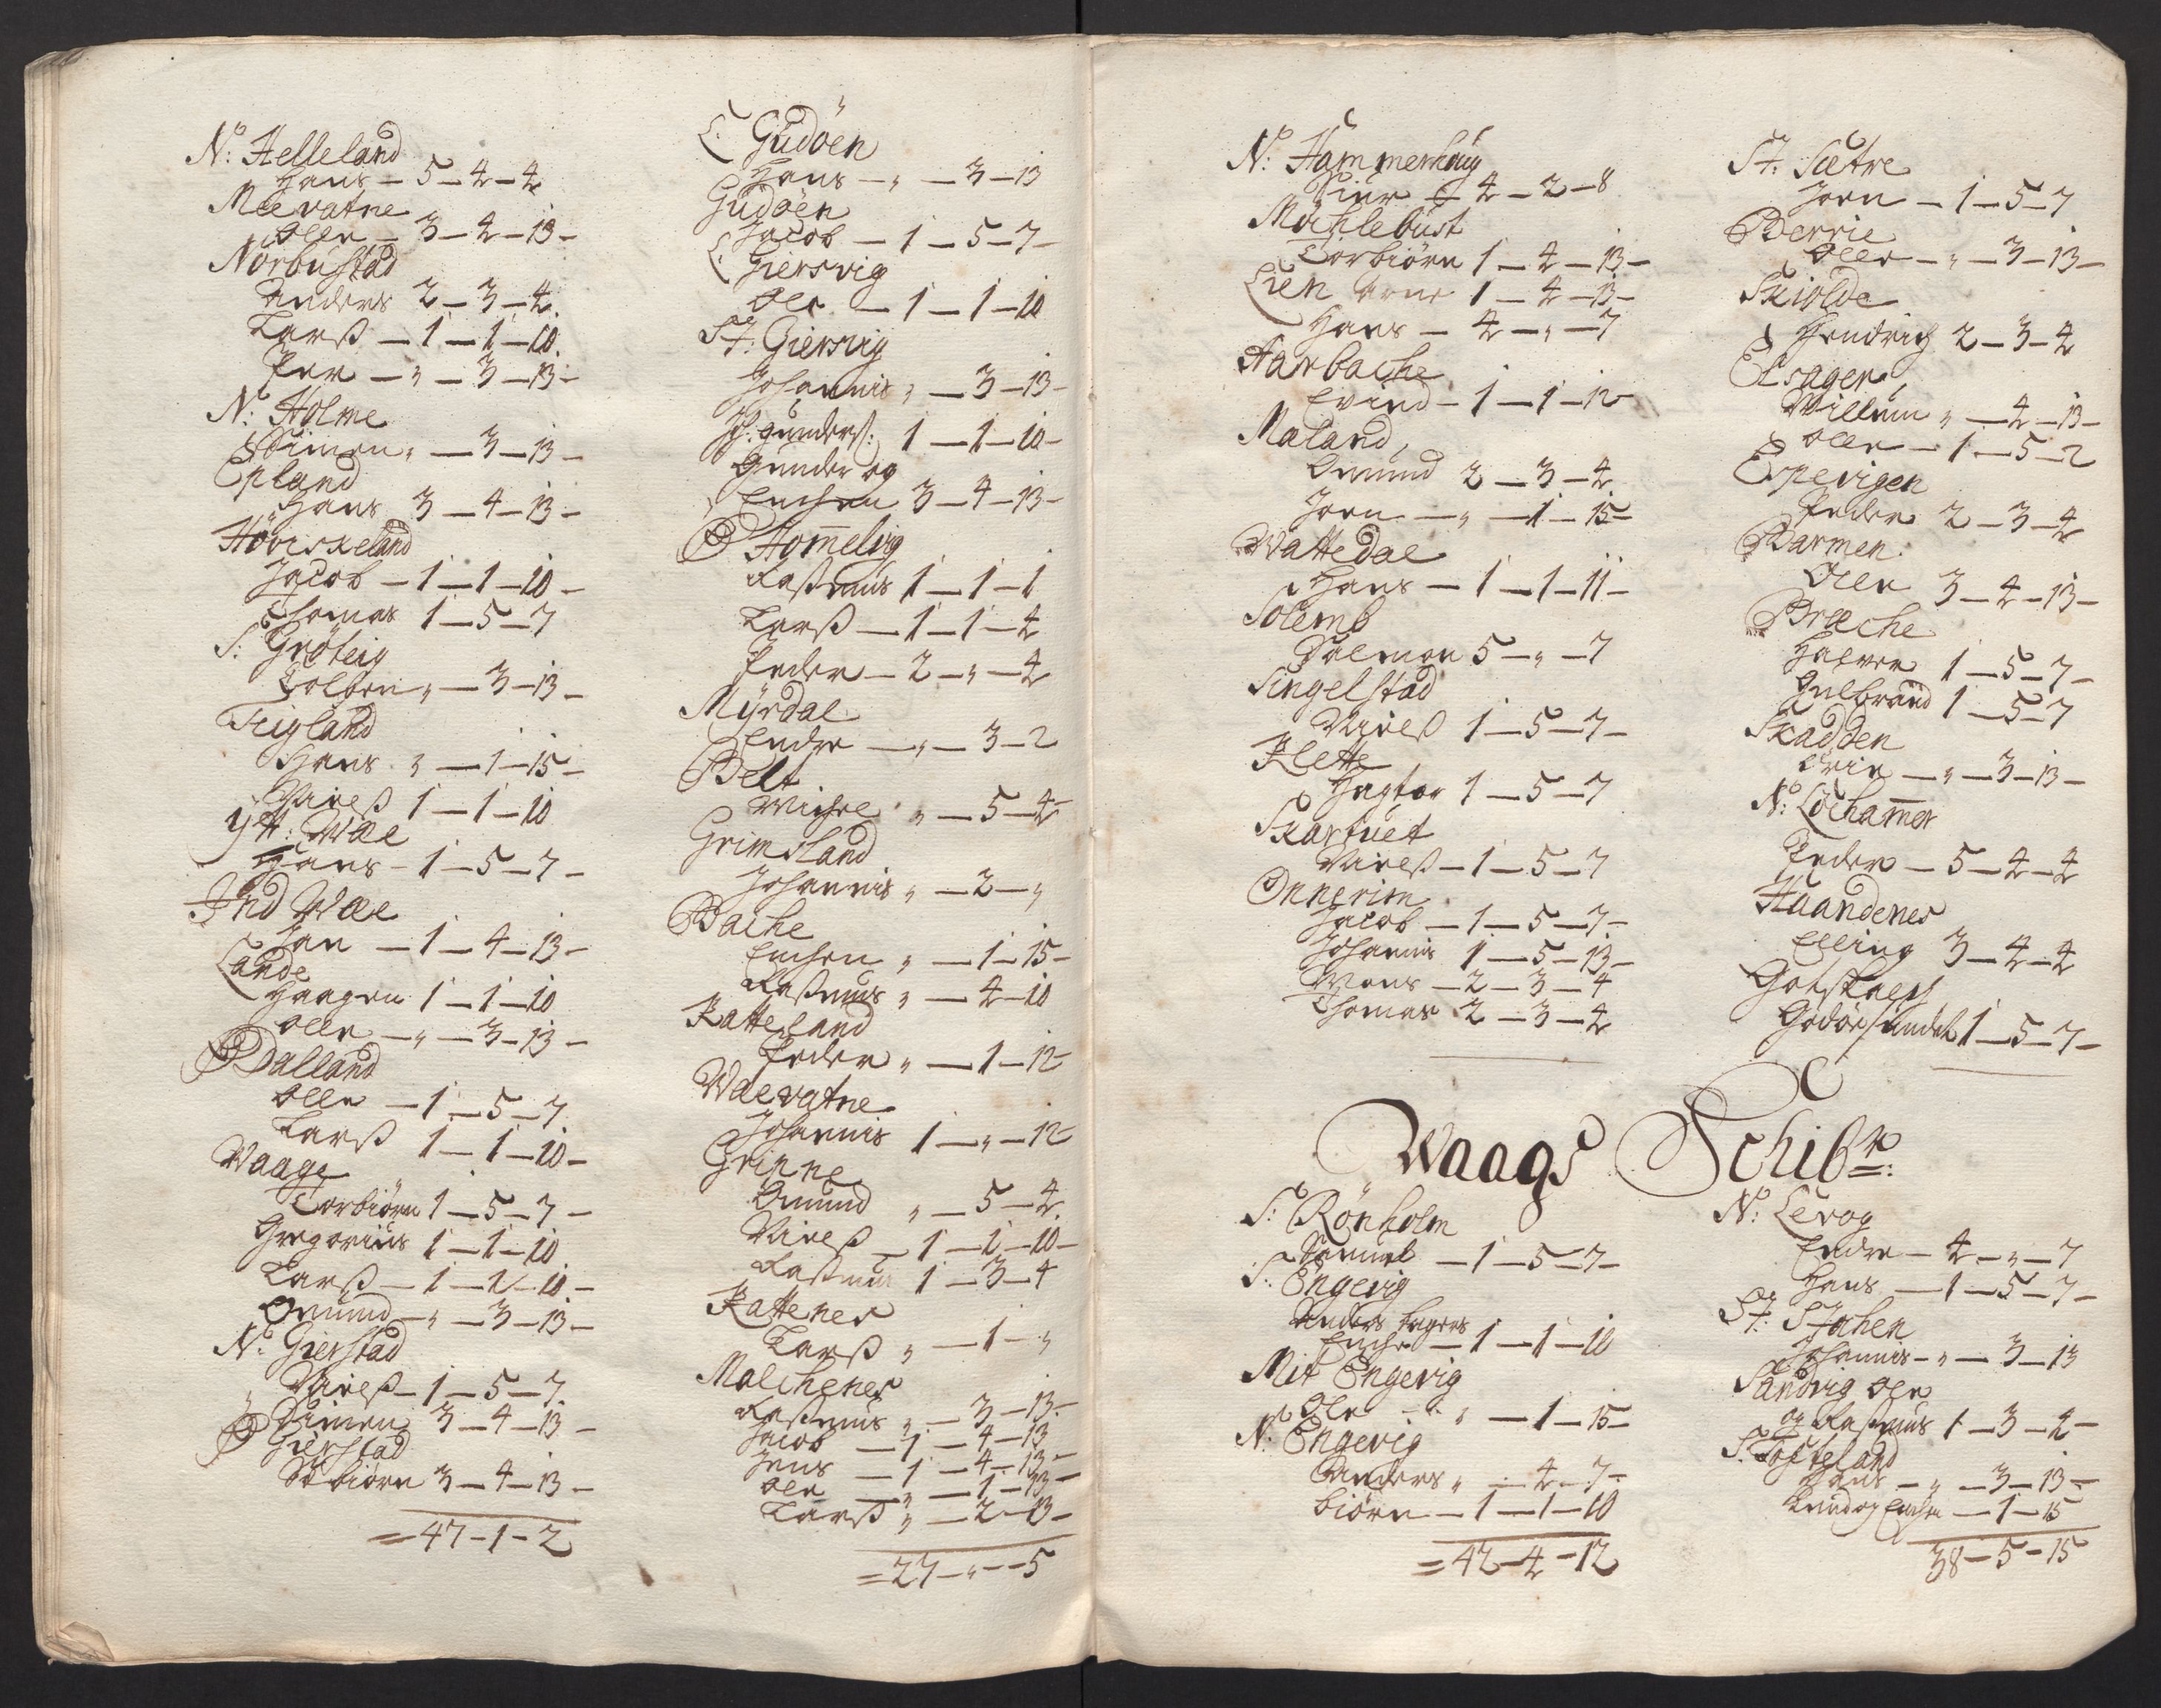 N: Helleland
Hans - 5 - 4 - 4
Mævatne
Olle - 3 - 4 - 13 -
Norbustad
Anders 2 - 3 - 4.
Larß - 1 - 1 - 10.
Per - " - 3 - 13 -
N: Holme
Simen " - 3 - 13 -
Epland
Hans 3 - 4 - 13 -
Høviskeland
Jacob - 1 - 1 - 10 -
Thomas 1 - 5 - 7
S: Grøteig
Tolben " - 3 - 13 -
Teigland
Hans " - 1 - 15 -
Nielß 1 - 1 - 10
Ytt: Wæe
Hans - 1 - 5 - 7 -
Ind Wæe
Jan - 1 - 4 - 13 -
Lande
Haagen 1 - 1 - 10
Olle - " - 3 - 13 -
Dalland
Olle - 1 - 5 - 7
Larß 1 - 1 - 10 -
Waage
Torbiørn 1 - 5 - 7 -
Gregorius 1 - 1 - 10
Larß - 1 - 1 - 10 -
Omund - " - 3 - 13 -
N: Gierstad
Nielß - 1 - 5 - 7
Simen 3 - 4 - 13 -
Ø Gierstad
Torbiørn 3 - 4 - 13 -
= 47 - 1 - 2
L: Gudøen
Hans - " - 3 - 13
Gudøen
Jacob - 1 - 5 - 7 -
L: Giersvig
Ole - 1 - 1 - 10
St: Giersvig
Johannis " - 3 - 13 -
Joh: Gunderß: 1 - 1 - 10 -
Gunder og
Enchen 3 - 4 - 13 -
Hom̅elvig
Raßmus 1 - 1 - 1
Larß - 1 - 1 - 4
Peder - 2 - " - 4
Myrdal
Endre - " - 3 - 2
Belt
Michel " - 5 - 4 -
Grimsland
Johannis " - 2 - "
Bache
Enchen " - 1 - 15 -
Raßmus " - 4 - 10
Katteland
Peder " - 1 - 12 -
Waevatne
Johannis 1 - " - 12 -
Grinne
Omund " - 5 - 4.
Nielß - 1 - 1 - 10 -
Raßmus 1 - 3 - 4
Kattenes
Larß " - 1 - "
Malchenes
Raßmus " - 3 - 13 -
Jacob - 1 - 4 - 13
Jens - 1 - 4 - 13 -
Ole - " - 1 - 13 -
Larß " - 2 - 13 -
= 27 - " - 5
N: Hammerhaug
Siur - 4 - 2 - 8
Mæhlebust
Torbiørn 1 - 4 - 13 -
Lien Arne 1 - 4 - 13 -
Hans - 4 - " - 7
Aarbache
Evind - 1 - 1 - 12 -
Maland
Omund 2 - 3 - 4
Joen - " - 1 - 15 -
Wattedal
Hans - 1 - 1 - 11 -
Solemb
Salmon 5 - " - 7
Singelstad
Nielß 1 - 5 - 7 -
Klette
Hagtor 1 - 5 - 7
Skartuet
Nielß - 1 - 5 - 7
Onnerim
Jacob - 1 - 5 - 7 -
Johannis 1 - 5 - 13 -
Mons - 2 - 3 - 4
Thomas 2 - 3 - 4
St: Sætre
Joen - 1 - 5 - 7
Berrie
Olle - " - 3 - 13 -
Skiolde
Hendrich 2 - 3 - 4
Elsager
Willum " - 4 - 13 -
Olle - 1 - 5 - 2
Espevigen
Peder 2 - 3 - 4
Barmen
Olle 3 - 4 - 13 -
Bræche
Halvor 1 - 5 - 7 -
Gulbrand 1 - 5 - 7
Skadden
Erik - " - 3 - 13 -
N: Løcham̅er
Peder - 5 - 4 - 4
Haandenes
Elling 3 - 4 - 4
Gotskalch
Godøesundet 1 - 5 - 7 -
Waags Schibr:
S: Rønholm
Samuel - 1 - 5 - 7 -
S: Engevig
Anders
1 - 1 - 10
Mit Engevig
Ole - " - 1 - 15 -
N: Engevig
Anders " - 4 - 7 -
Biørn - 1 - 1 - 10
= 42 - 4 - 12
N: Lerog
Endre - 4 - " - 7
Hans - 1 - 5 - 7 -
St: Stohen
Johannis - " - 3 - 13
Sandvig Ole
og Raßmus 1 - 3 - 4 -
S: Tofteland
Hans - " - 3 - 13 -
Knud og Enchen - 1 - 15
38 - 5 - 15